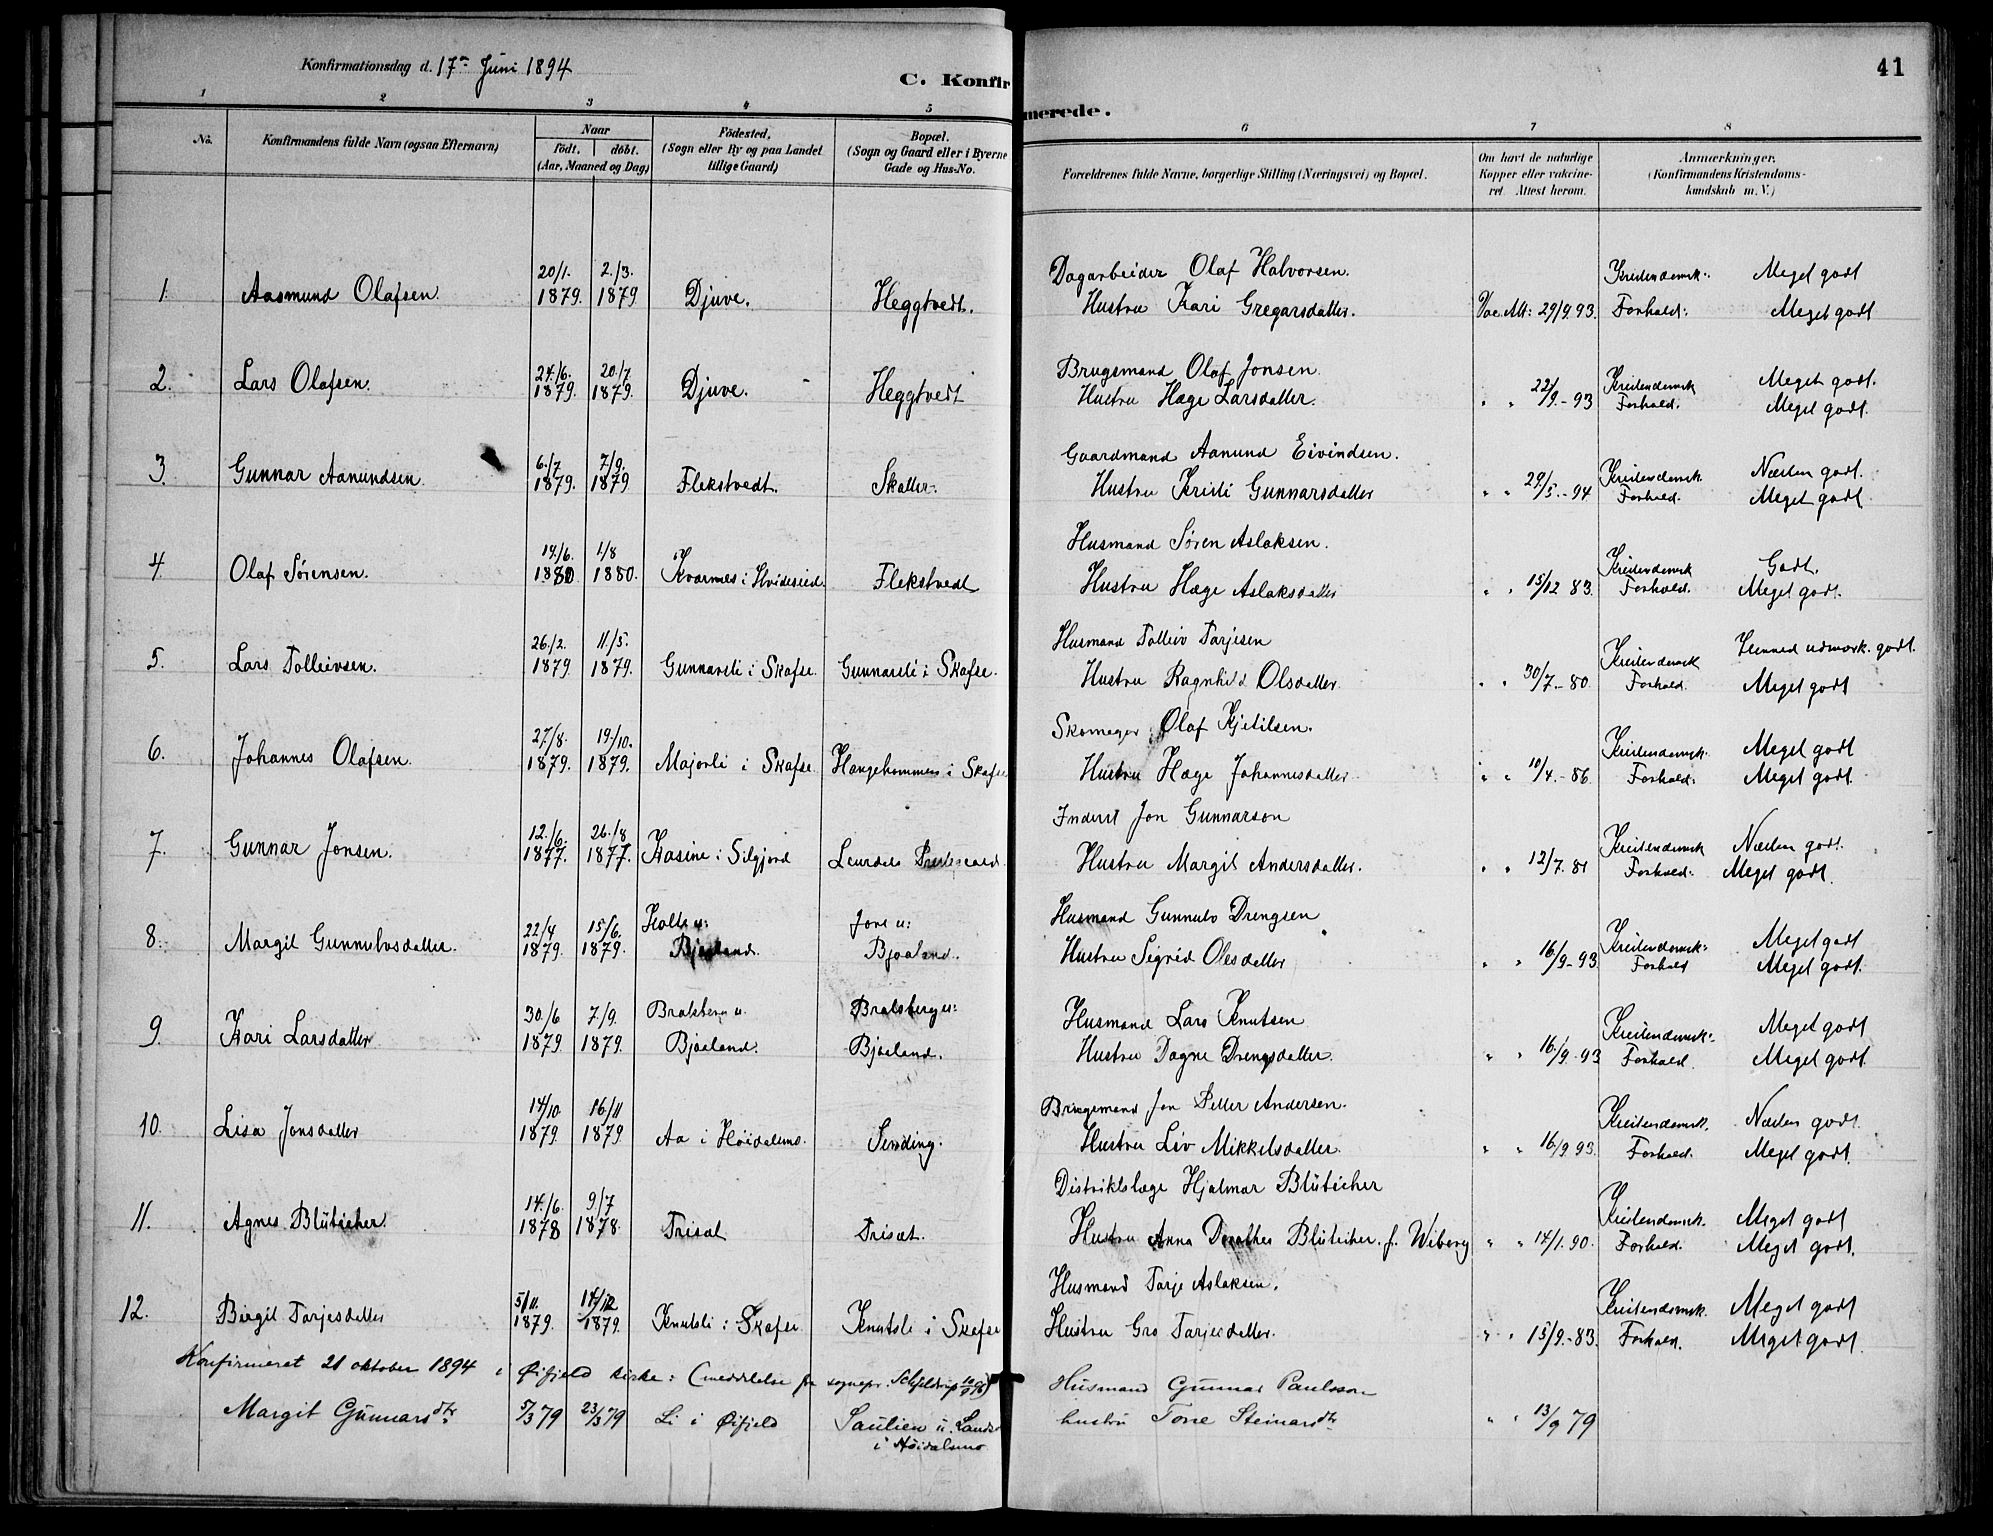 Konfirmationsdag d. 17de Juni 1894
C. Konfirmerede.
41
1 2 3 4 5 6 7 8
No.
Konfirmandens fulde Navn (ogsaa Efternavn)
Naar
født. døbt.
(Aar, Maaned og Dag)
Fødested,
(Sogn eller By og paa Landet
tillige Gaard)
Bopæl.
(Sogn og Gaard eller i Byerne
Gade og Hus-No.
Forældrenes fulde Navne, borgerlige Stilling (Næringsvei) og Bopæl.
Om havt de naturlige
Kopper eller vakcine-
ret. Attest herom.
Anmærkninger.
(Konfirmandens Kristendoms-
kundskab m. V.)
20/1. 2./3. Dagarbeider Olaf Halvorsen. Kristendomsk: Meget godt
1. Aasmund Olafsen. 1879. 1879 Djuve. Heggtvedt. Hustru Kari Gregarsdatter. Vac. Att: 29/9.93. Forhold: Meget godt
24./6. 20./7 Brugsmand Olaf Jonsen. Kristendomsk Meget godt.
2. Lars Olafsen. 1879. 1879. Djuve. Heggtvedt Hustru Hæge Larsdatter. " " 22/9.-93 Forhold. Meget godt.
6./7 7/9. Gaardmand Aanund Eivindsen. Kristendomsk. Næsten godt.
3. Gunnar Aanundsen 1879. 1879 Flekstvedt. Skatter. Hustru Kristi Gunnarsdatter " " 29/5.-94 Forhold. Meget godt
14./6. 1/8 Husmand Søren Aslaksen. Kristendomsk Godt.
4. Olaf Sørensen. 1880 1880. Kvarmes i Hvideseid. Flekstvedt Hustru Hæge Aslaksdatter " " 15/12 83. Forhold. Meget godt.
26./2. 11/5. Husmand Tolleiv Tarjesen Kristendomsk udmærk. godt.
5. Lars Tolleivsen. 1879 1879. Gunnarsli i Skafse. Gunnarsli i Skafse. Hustru Ragnhild Olsdatter. " " 30/7.-80. Forhold. Meget godt
27/8. 19./10. Skomager Olaf Kjetilsen. Kristendomsk. Meget godt
6. Johannes Olafsen. 1879. 1879. Majorli i Skafse. i Skafse Hustru Hæge Johannesdatter. " " 10/4.-86. Forhold: Meget godt.
12./6. 26./8 Inderst Jon Gunnarson Kristendomsk Næsten godt.
7. Gunnar Jonsen. 1877. 1877. Kasine i Silgjord Hustru Margit Andersdatter. " " 12/7. 81 Forhold: Meget godt.
22/4 15/6. u: Jore u: Husmand Gunnulv Drengsen Kristendomsk: Meget godt
8. Margit Gunnulvsdatter. 1879. 1879. Bjaaland. Bjaaland. Hustru Sigrid Olesdatter " " 16/9-93. Forhold Meget godt.
30./6 7/9. Bratsberg u. Bratsberg u: Husmand Lars Knutsen Kristendomsk: Meget godt
9. Kari Larsdatter 1879 1879. Bjaaland. Bjaaland. Hustru Dagne Drengsdatter. " " 16./9.-93 Forhold. Meget godt.
14/10. 16/11 Brugsmand Jon Petter Andersen. Kristendomsk. Næsten godt.
10. Lisa Jonsdatter 1879. 1879 Aa i Høidalsmo. Sending. Hustru Liv Mikkelsdatter. " " 16/9 93. Forhold. Meget godt.
14./6. 9/7 Distriktslæge Hjalmar Blüticher Kristendomsk. Meget godt
11. Agnes Blüticher. 1878 1878. Trisæt Trisæt. Hustru Anna Dorothea Blüticher. f. Wiberg " " 14/1.90. Forhold. Meget godt.
5/11. 14/12 Husmand Tarje Aslaksen. Kristendomsk. Meget godt
12. Birgit Tarjesdatter 1879. 1879. Knutsli i Skafse Knutsli i Skafse Hustru Gro Tarjesdatter. " " 15/9.-83. Forhold. Meget godt.
Konfirmeret 21 oktober 1894 i Øifjeld kirke: (meddelelse fra sognepr. Schjeldrup
Margit Gunnarsdtr. 5/3 79 23/3 79 Li i Øifjeld u. i Høidalsmo Husmand Gunnar Paulsson
hustru Tone Steinarsdtr " " 13/9 79